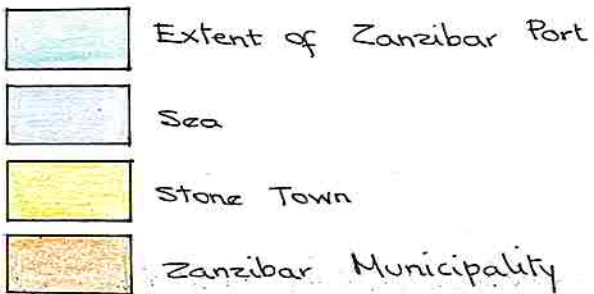 Extent of Zanzibar Port
Sea
Stone Town
Zanzibar Municipality